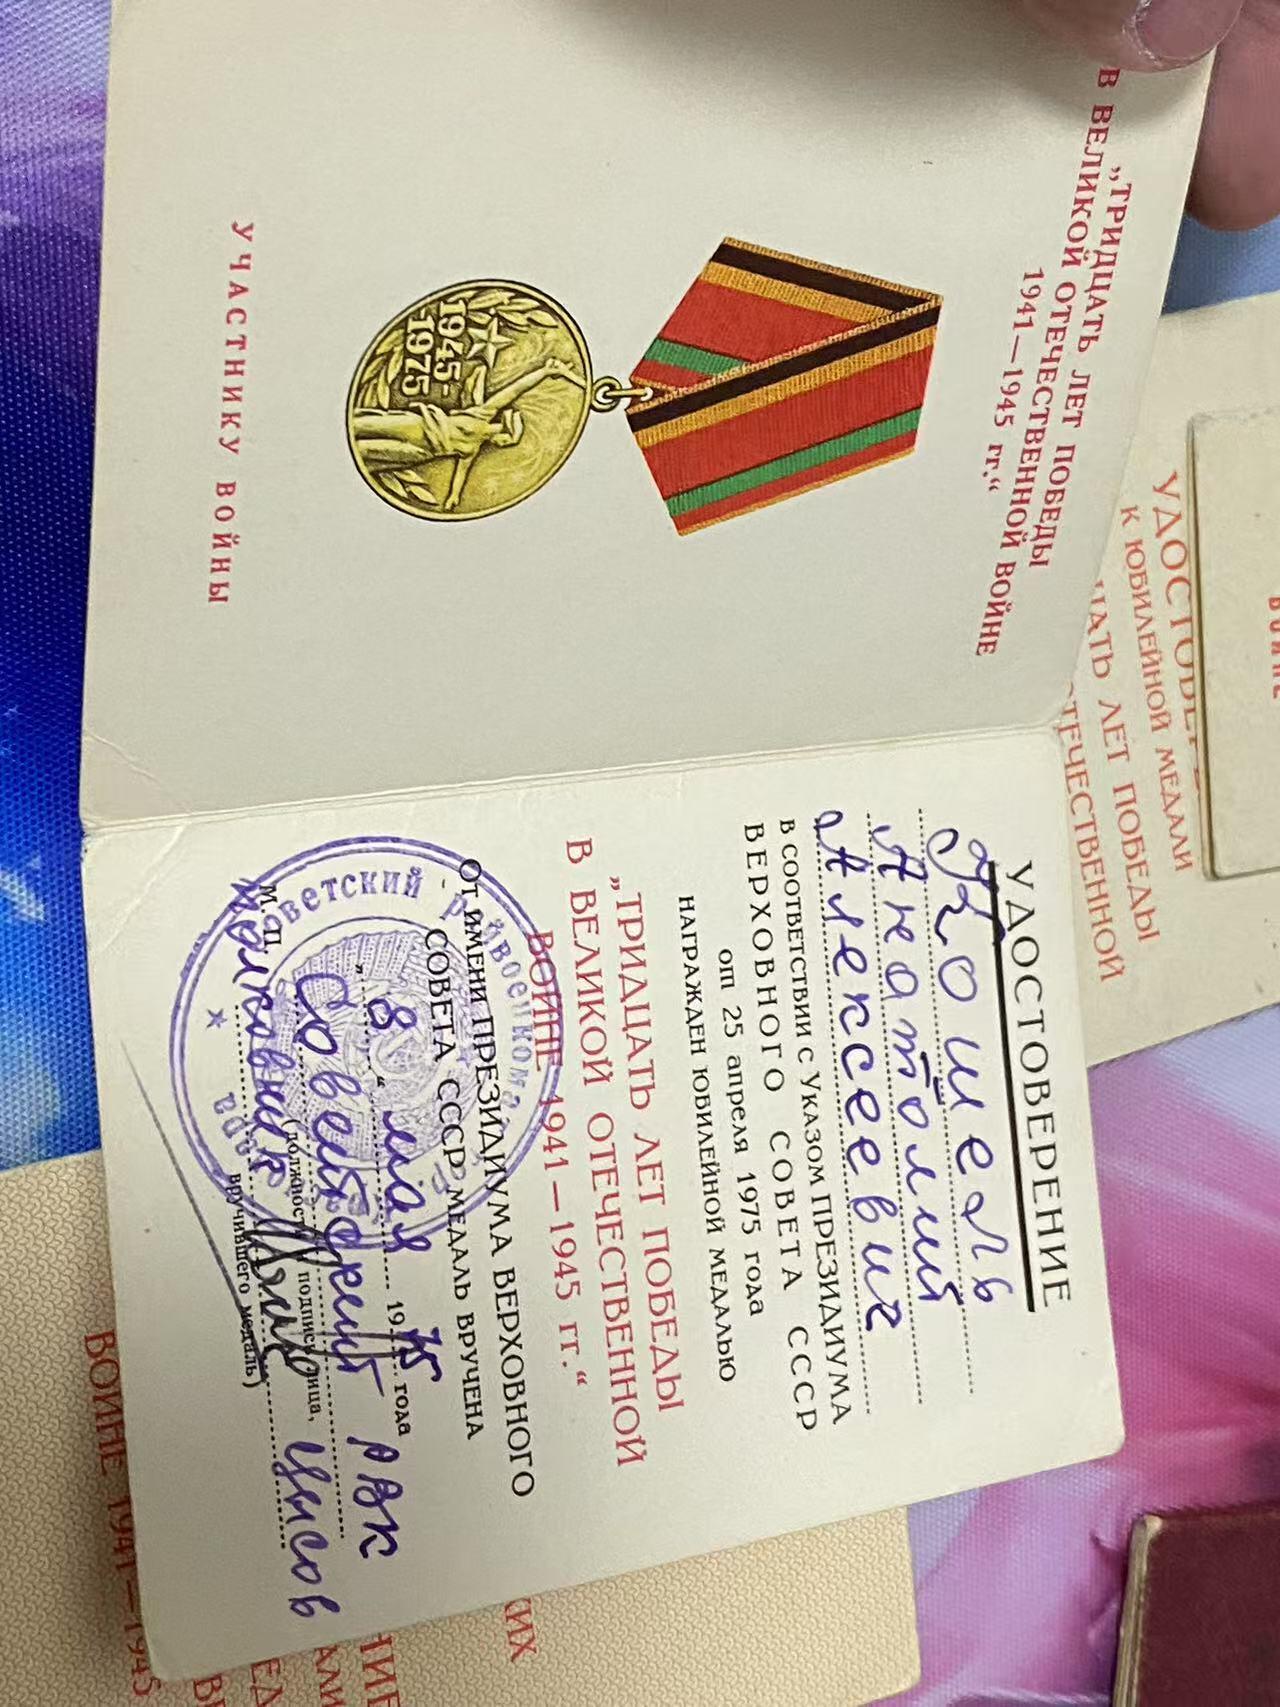 „ТРИДЦАТЬ ЛЕТ ПОБЕДЫ
В ВЕЛИКОЙ ОТЕЧЕСТВЕННОЙ ВОЙНЕ
1941—1945 гг.“
1945-
1975
УЧАСТНИКУ ВОЙНЫ
УДОСТОВЕРЕНИЕ
Кошель
Анатолий
Алексеевич
В СООТВЕТСТВИИ С УКАЗОМ ПРЕЗИДИУМА
ВЕРХОВНОГО СОВЕТА СССР
от 25 апреля 1975 года
НАГРАЖДЕН ЮБИЛЕЙНОЙ МЕДАЛЬЮ
„ТРИДЦАТЬ ЛЕТ ПОБЕДЫ
В ВЕЛИКОЙ ОТЕЧЕСТВЕННОЙ
ВОЙНЕ 1941—1945 гг.“
От ИМЕНИ ПРЕЗИДИУМА ВЕРХОВНОГО
СОВЕТА СССР МЕДАЛЬ ВРУЧЕНА
„8“ мая 1975 года
Советский РВК
М. П. (должность, подпись лица,
полковник
вручившего медаль)
советский райвоенком
УДОСТОВЕР
К ЮБИЛЕЙНОЙ МЕДАЛИ
ЦАТЬ ЛЕТ ПОБЕДЫ
ТЕЧЕСТВЕННОЙ
ВОЙНЕ
ВОЙНЕ 1941—1945
КИХ
НИЕ
АЛИ
ЕД
ВЕ